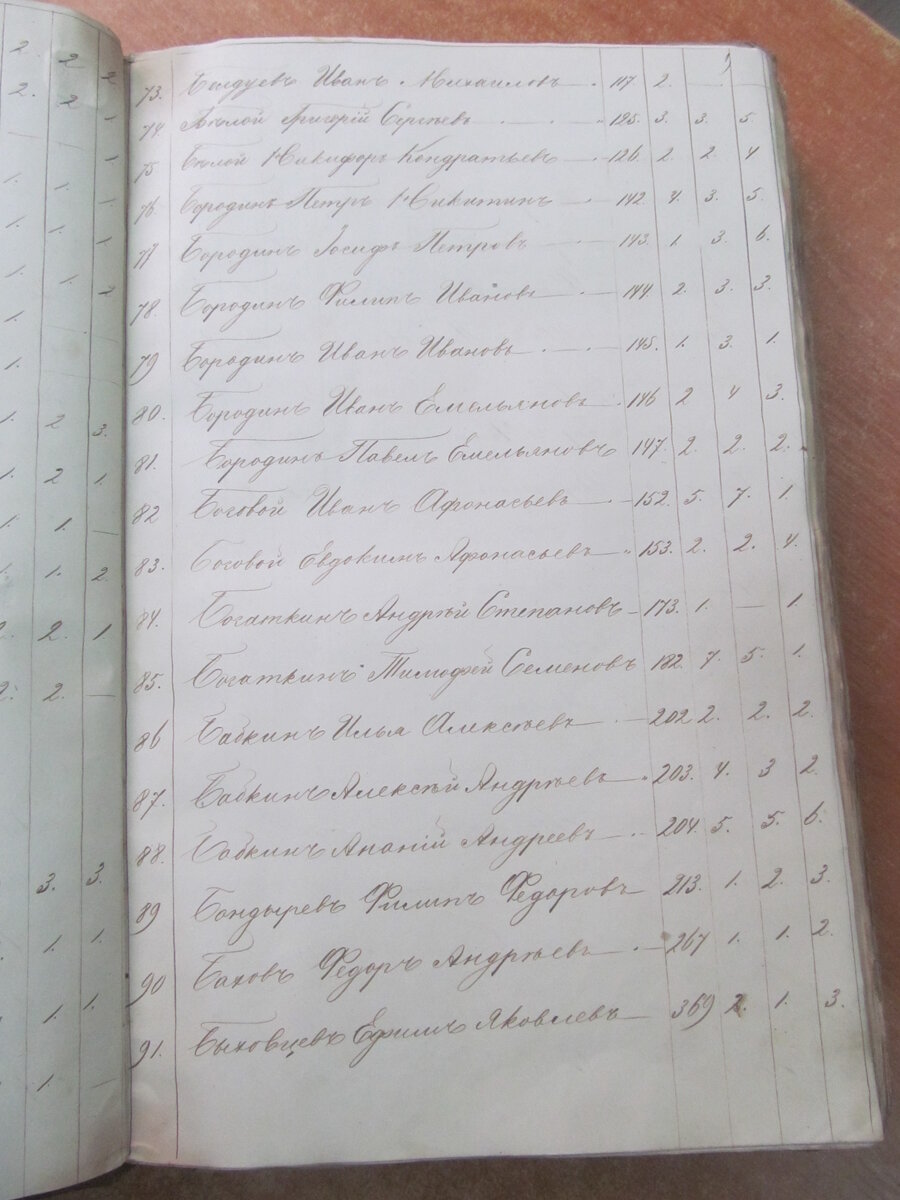 2. 2 2
2. 2 -
- -
1. - 1.
1. 1. 1
1. 2
1.
1.
1. 2 3.
1. 2 1.
1. 1. -
1. 1. 2.
2. 2. 1
2. 2. -
3. 3.
1. 1.
1. 1.
1. -
73. Болдуевъ Иванъ Михаиловъ 117. 2. - .
74. Бѣлой Григорій Сергѣевъ - - 125. 3. 3. 5.
75 Бѣлой Никифоръ Кондратьевъ 126. 2. 2. 4
76. Бородинъ Петръ Никитинъ - 142. 4. 3. 5.
77 Бородинъ Іосифъ Петровъ - 143. 1. 3. 6.
78. Бородинъ Филипъ Ивановъ - 144. 2. 3. 3.
79 Бородинъ Иванъ Ивановъ - - 145. 1. 3. 1.
80. Бородинъ Иванъ Емельяновъ 146 2 4 3.
81. Бородинъ Павелъ Емельяновъ 147. 2. 2. 2.
82 Боговой Иванъ Афонасьевъ - 152. 5. 7. 1.
83. Боговой Евдокимъ Афонасьевъ 153. 2. 2. 4.
84. Богаткинъ Андрѣй Степановъ - 173. 1. - 1.
85. Богаткинъ Тимофей Семеновъ 182. 7. 5. 1.
86 Бабкинъ Илья Алексѣевъ - 202 2. 2. 2.
87. Бабкинъ Алексѣй Андрѣевъ 203. 4. 3 2.
88. Бабкинъ Ананій Андреевъ 204. 5. 5. 6.
89 Бондыревъ Филипъ Федоровъ 213. 1. 2. 3.
90 Баховъ Федоръ Андрѣевъ - 267 1. 1. 2.
91. Быховцевъ Ефимъ Яковлевъ - 369 2. 1. 3.